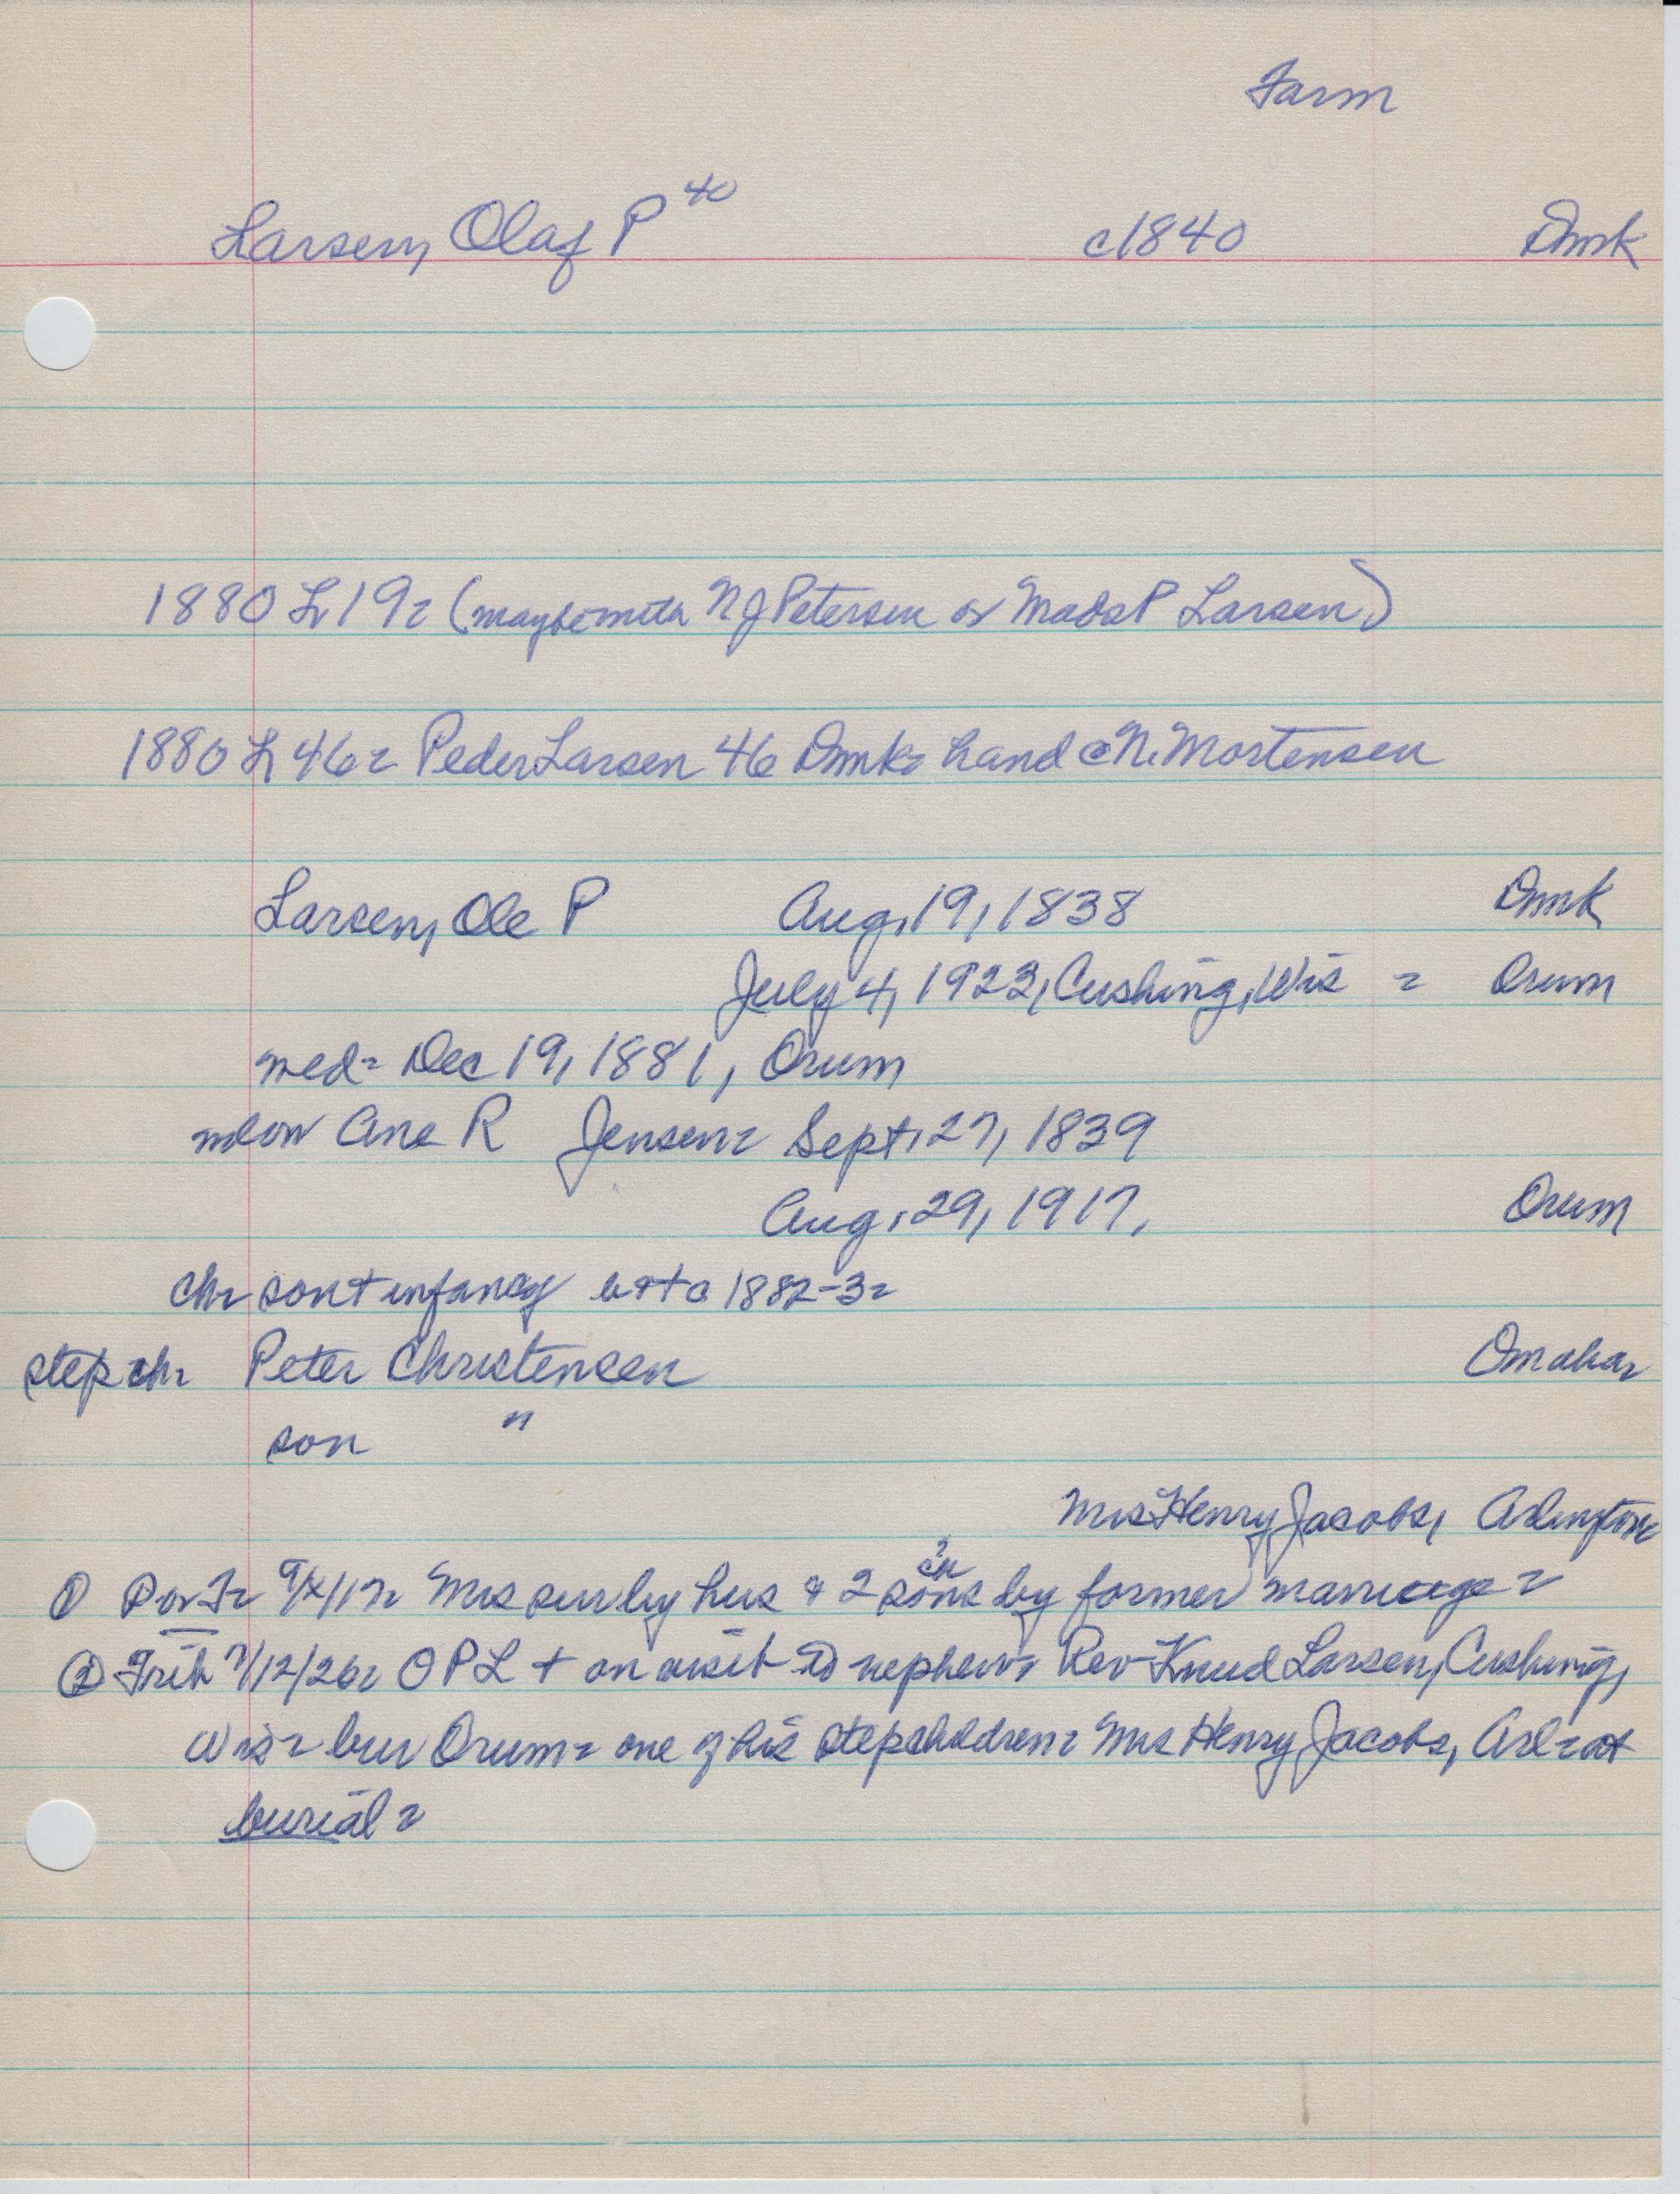 Farm
Larsen, Olaf P 40 c1840 Dmk
1880 L 19= (maybe N J Petersen or Mads P Larsen)
1880 L 46= Peder Larsen 46 Dmk= hand c N. Mortensen
Larsen, Ole P Aug. 19, 1838 Dmk
July 4, 1922, Cushing, Wis = Orum
med= Dec 19, 1881, Orum
Ane R Jensen= Sept. 27, 1839
Aug. 29, 1917, Orum
ch= son + infancy b + + c 1882-3=
step ch= Peter Christensen Omaha=
son "
Mrs Henry Jacobs, Arlington
ch?
① 9/X/17= Mrs sur by hus & 2 sons by former marriage=
② Trib 7/12/26= O P L + on visit to nephew= Rev Knud Larsen, Cushing,
Wis= bur Orum= one of his stepchildren= Mrs Henry Jacobs, Arl= at
burial=